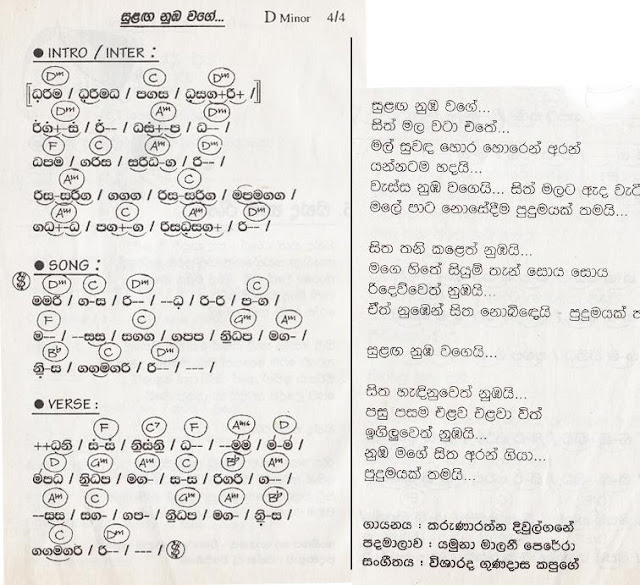 සුළඟ නුඹ වගේ... D Minor 4/4
● INTRO / INTER :
Dm C Dm
[ධරිම / ධරිමධ / පගස / ධසග+රි+ /]
Dm Am Dm
රිග+-ස / රි-- / ධස+-ප / ධ-- /
F C Am Dm
ධපම / ගරිස / සරිධ-ග / රි-- /
Am C Am
රිස-සරිග / ගගග / රිස-සරිග / මපමගග /
Am C Am Dm
ගධ+-ධ / පග+-ග / රිසධසග+ / රි-- /
● SONG :
Dm C Dm C
මමරි / ග-ස / රි-- / --ධ / රි-රි / ප-ග /
F C Gm Am
ම-- / --සස / සගග / ගපප / නිධප / මග- /
Bb C Dm
නි-ස / ගගමගරි / රි-- / --- /
● VERSE :
F C7 F Am6 D
++ධනි / ස-ස / නිස්නි / ධ-- / --මම / ම-ම /
D Gm Am C Bb Am
මපධ / නිධප / මග- / ස-ස / රිගරි / ග-- /
Am C Gm Am Bb
--සස / සග- / ගප- / නිධප / මග- / නි-ස /
C Dm
ගගමගරි / රි-- / --- /
සුළඟ නුඹ වගේ...
සිත් මල වටා එතේ...
මල් සුවඳ හොර හොරෙන් අරන්
යන්නටම හදයි...
වැස්ස නුඹ වගෙයි... සිත් මලට ඇද වැටි
මලේ පාට නොසේදීම පුදුමයක් තමයි...
සිත තනි කළෙත් නුඹයි...
මගෙ හිතේ සියුම් තැන් සොය සොය
රිදෙව්වෙත් නුඹයි...
ඒත් නුඹෙන් සිත නොබිඳෙයි - පුදුමයක් ත
සුළඟ නුඹ වගෙයි...
සිත හැඳිනුවෙත් නුඹයි...
පසු පසම එළව එළවා විත්
ඉගිලුවෙත් නුඹයි...
නුඹ මගේ සිත අරන් ගියා...
පුදුමයක් තමයි...
ගායනය : කරුණාරත්න දිවුල්ගනේ
පදමාලාව : යමුනා මාලනී පෙරේරා
සංගීතය : විශාරද ගුණදාස කපුගේ